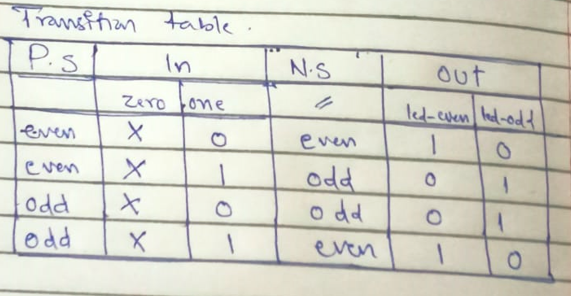 Transition table.
P.S In N.S OUT
zero one " led-even led-odd
even X 0 even 1 0
even X 1 odd 0 1
odd X 0 odd 0 1
odd X 1 even 1 0